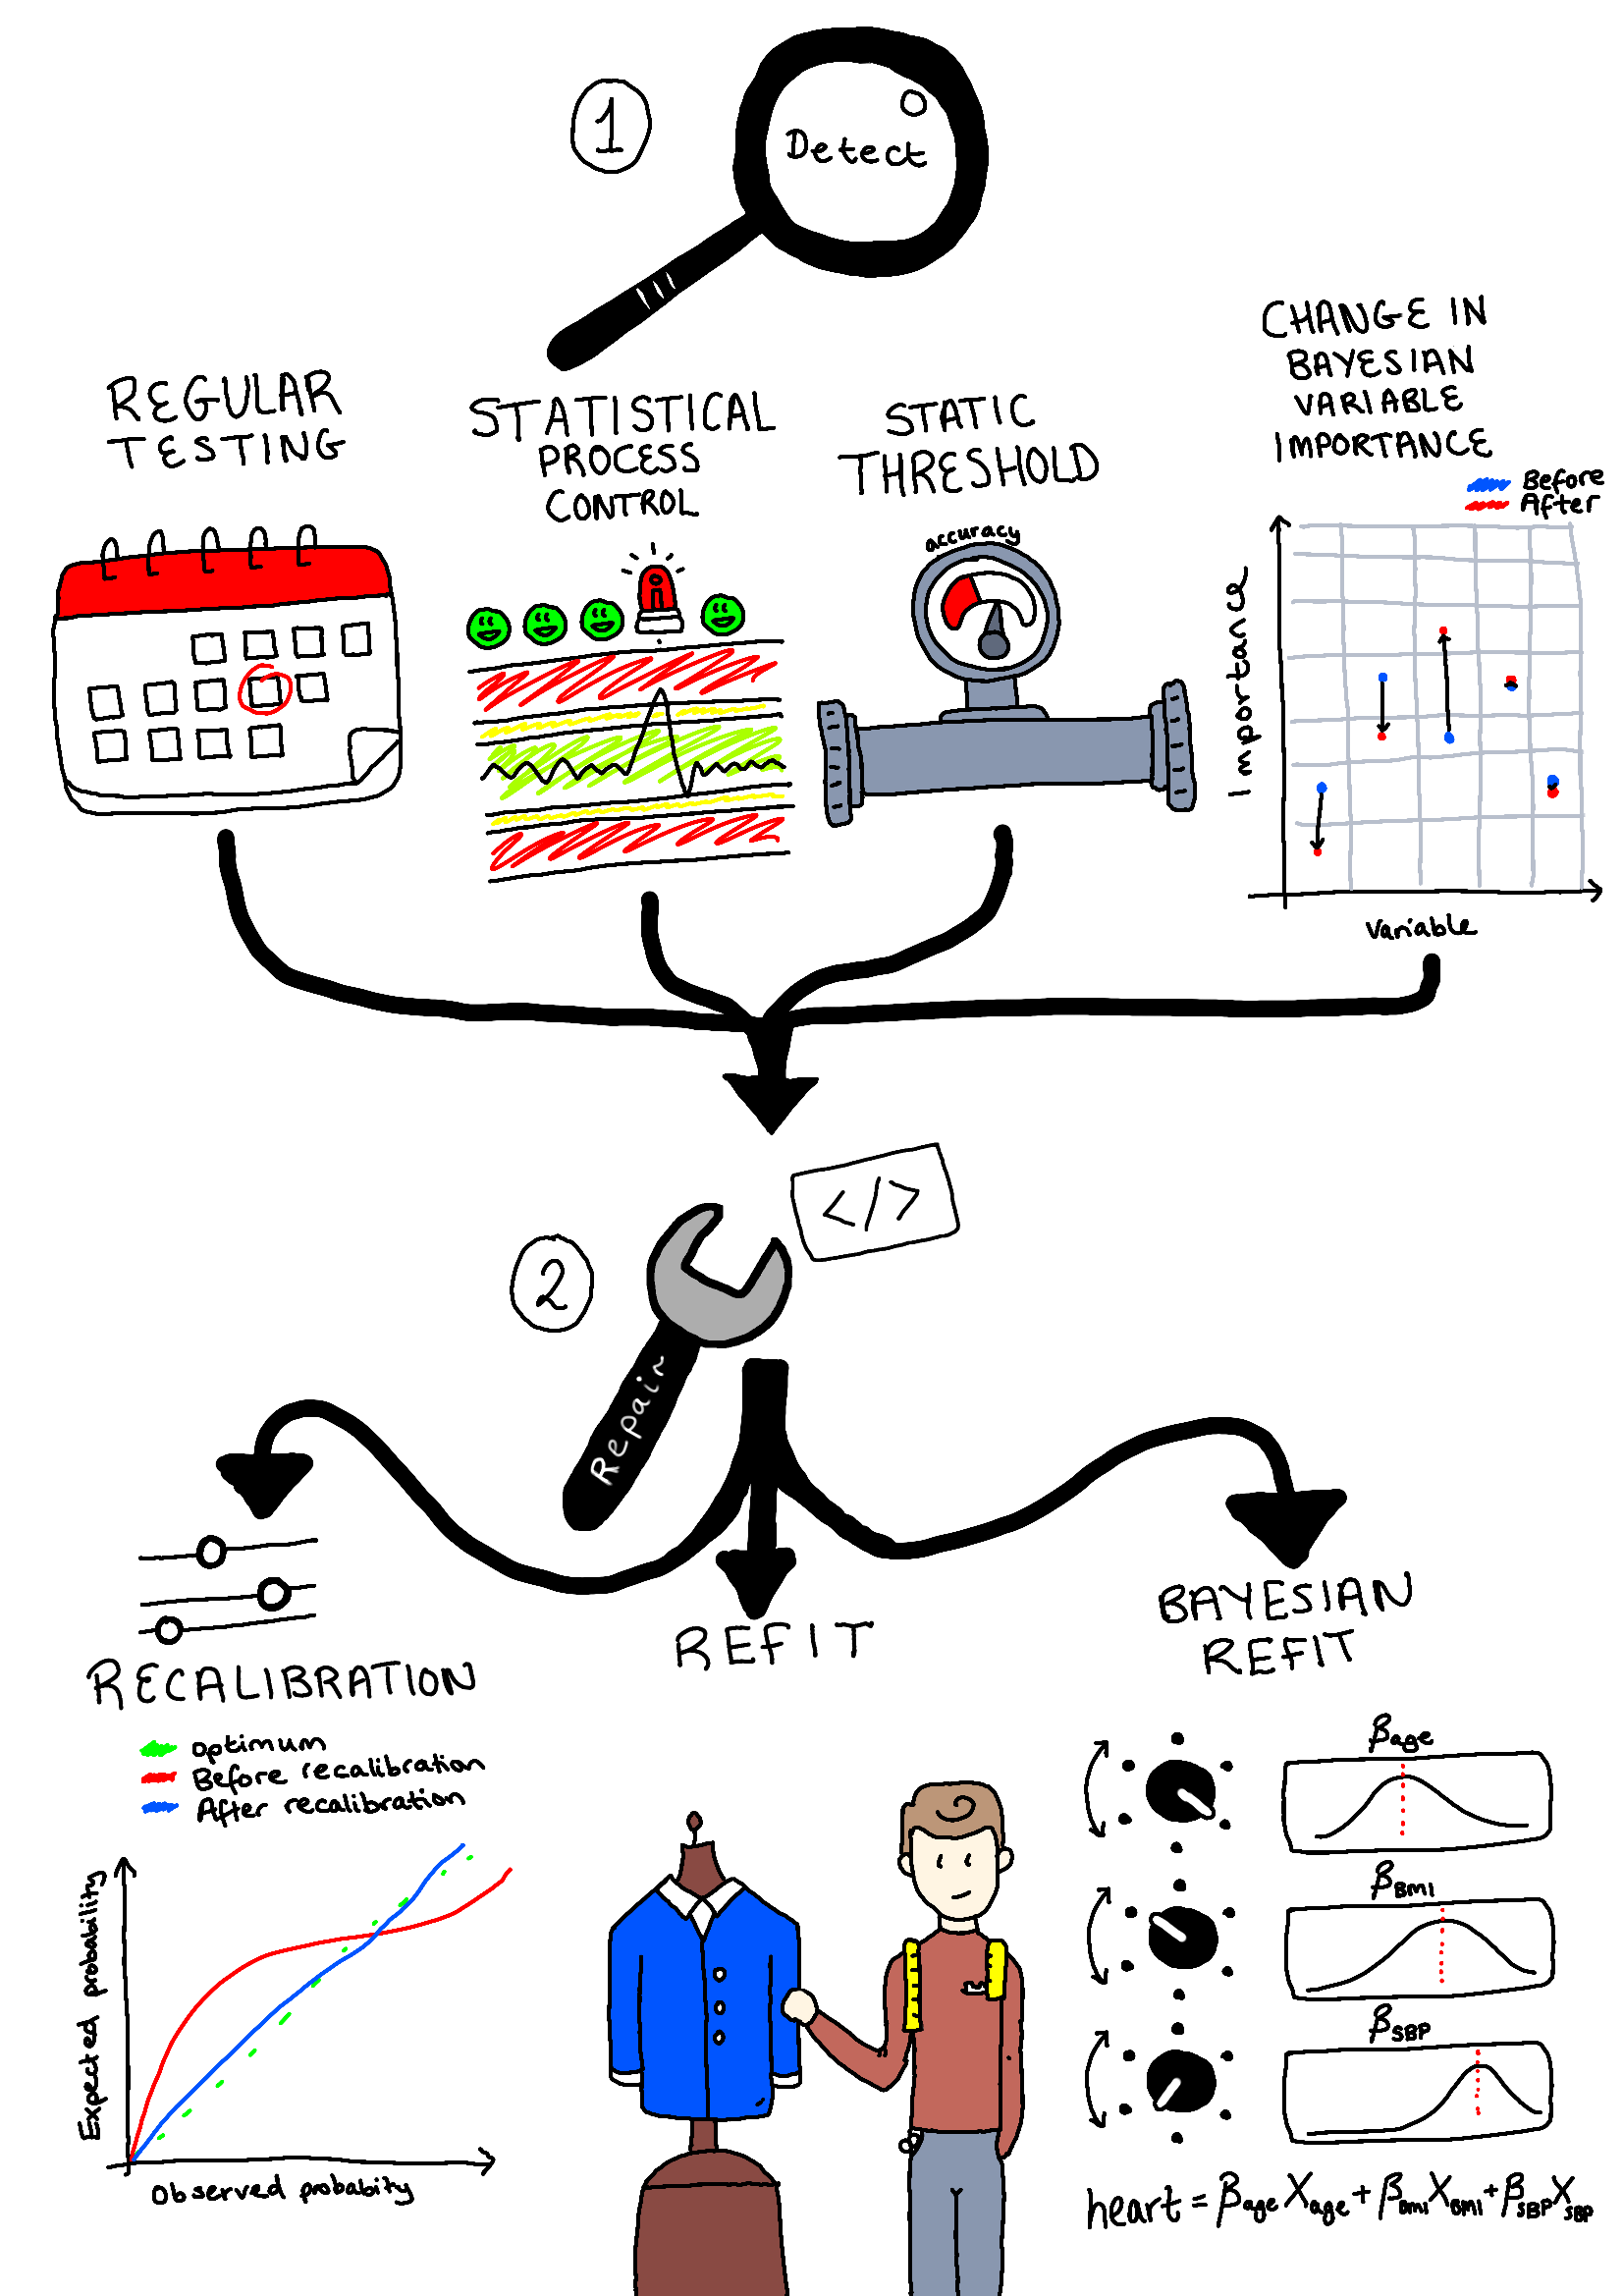 1
Detect
REGULAR
TESTING
STATISTICAL
PROCESS
CONTROL
STATIC
THRESHOLD
accuracy
CHANGE IN
BAYESIAN
VARIABLE
IMPORTANCE
Before
After
Importance
Variable
2
</>
Repair
RECALIBRATION
Optimum
Before recalibration
After recalibration
Expected probability
Observed probabity
REFIT
BAYESIAN
REFIT
βage
βBMI
βSBP
heart = βage Xage + βBMI XBMI + βSBP XSBP